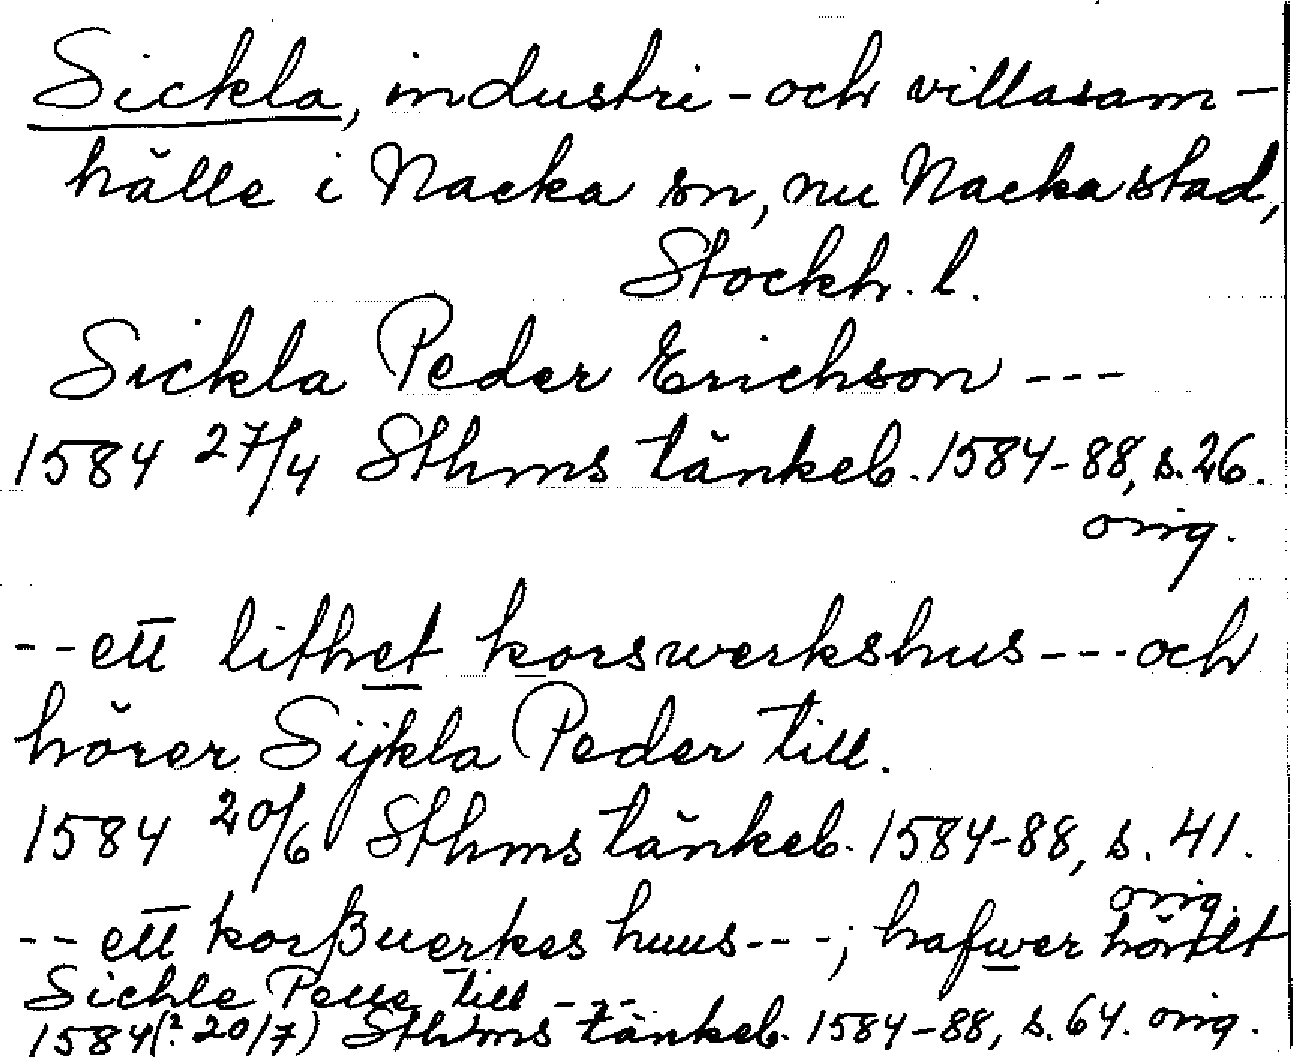 Sickla, industri- och villasam-
hälle i Nacka sn, nu Nacka stad,
Stockh. l.
Sickla Peder Erichson ---
1584 27/4 Sthms tänkeb. 1584-88, s. 26.
orig.
--ett lithet korswerkshus --- och
hörer Sijkla Peder till.
1584 20/6 Sthms tänkeb. 1584-88, s. 41.
orig.
--ett korßuerkes huus ---; hafwer hördt
Sichle Pelle till ---
1584 (? 20/7) Sthms tänkeb. 1584-88, s. 64. orig.